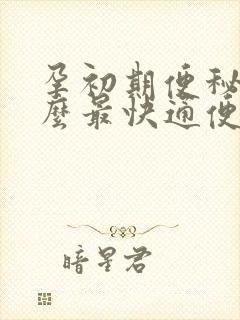 孕初期便秘
麼最快通便
暗星君